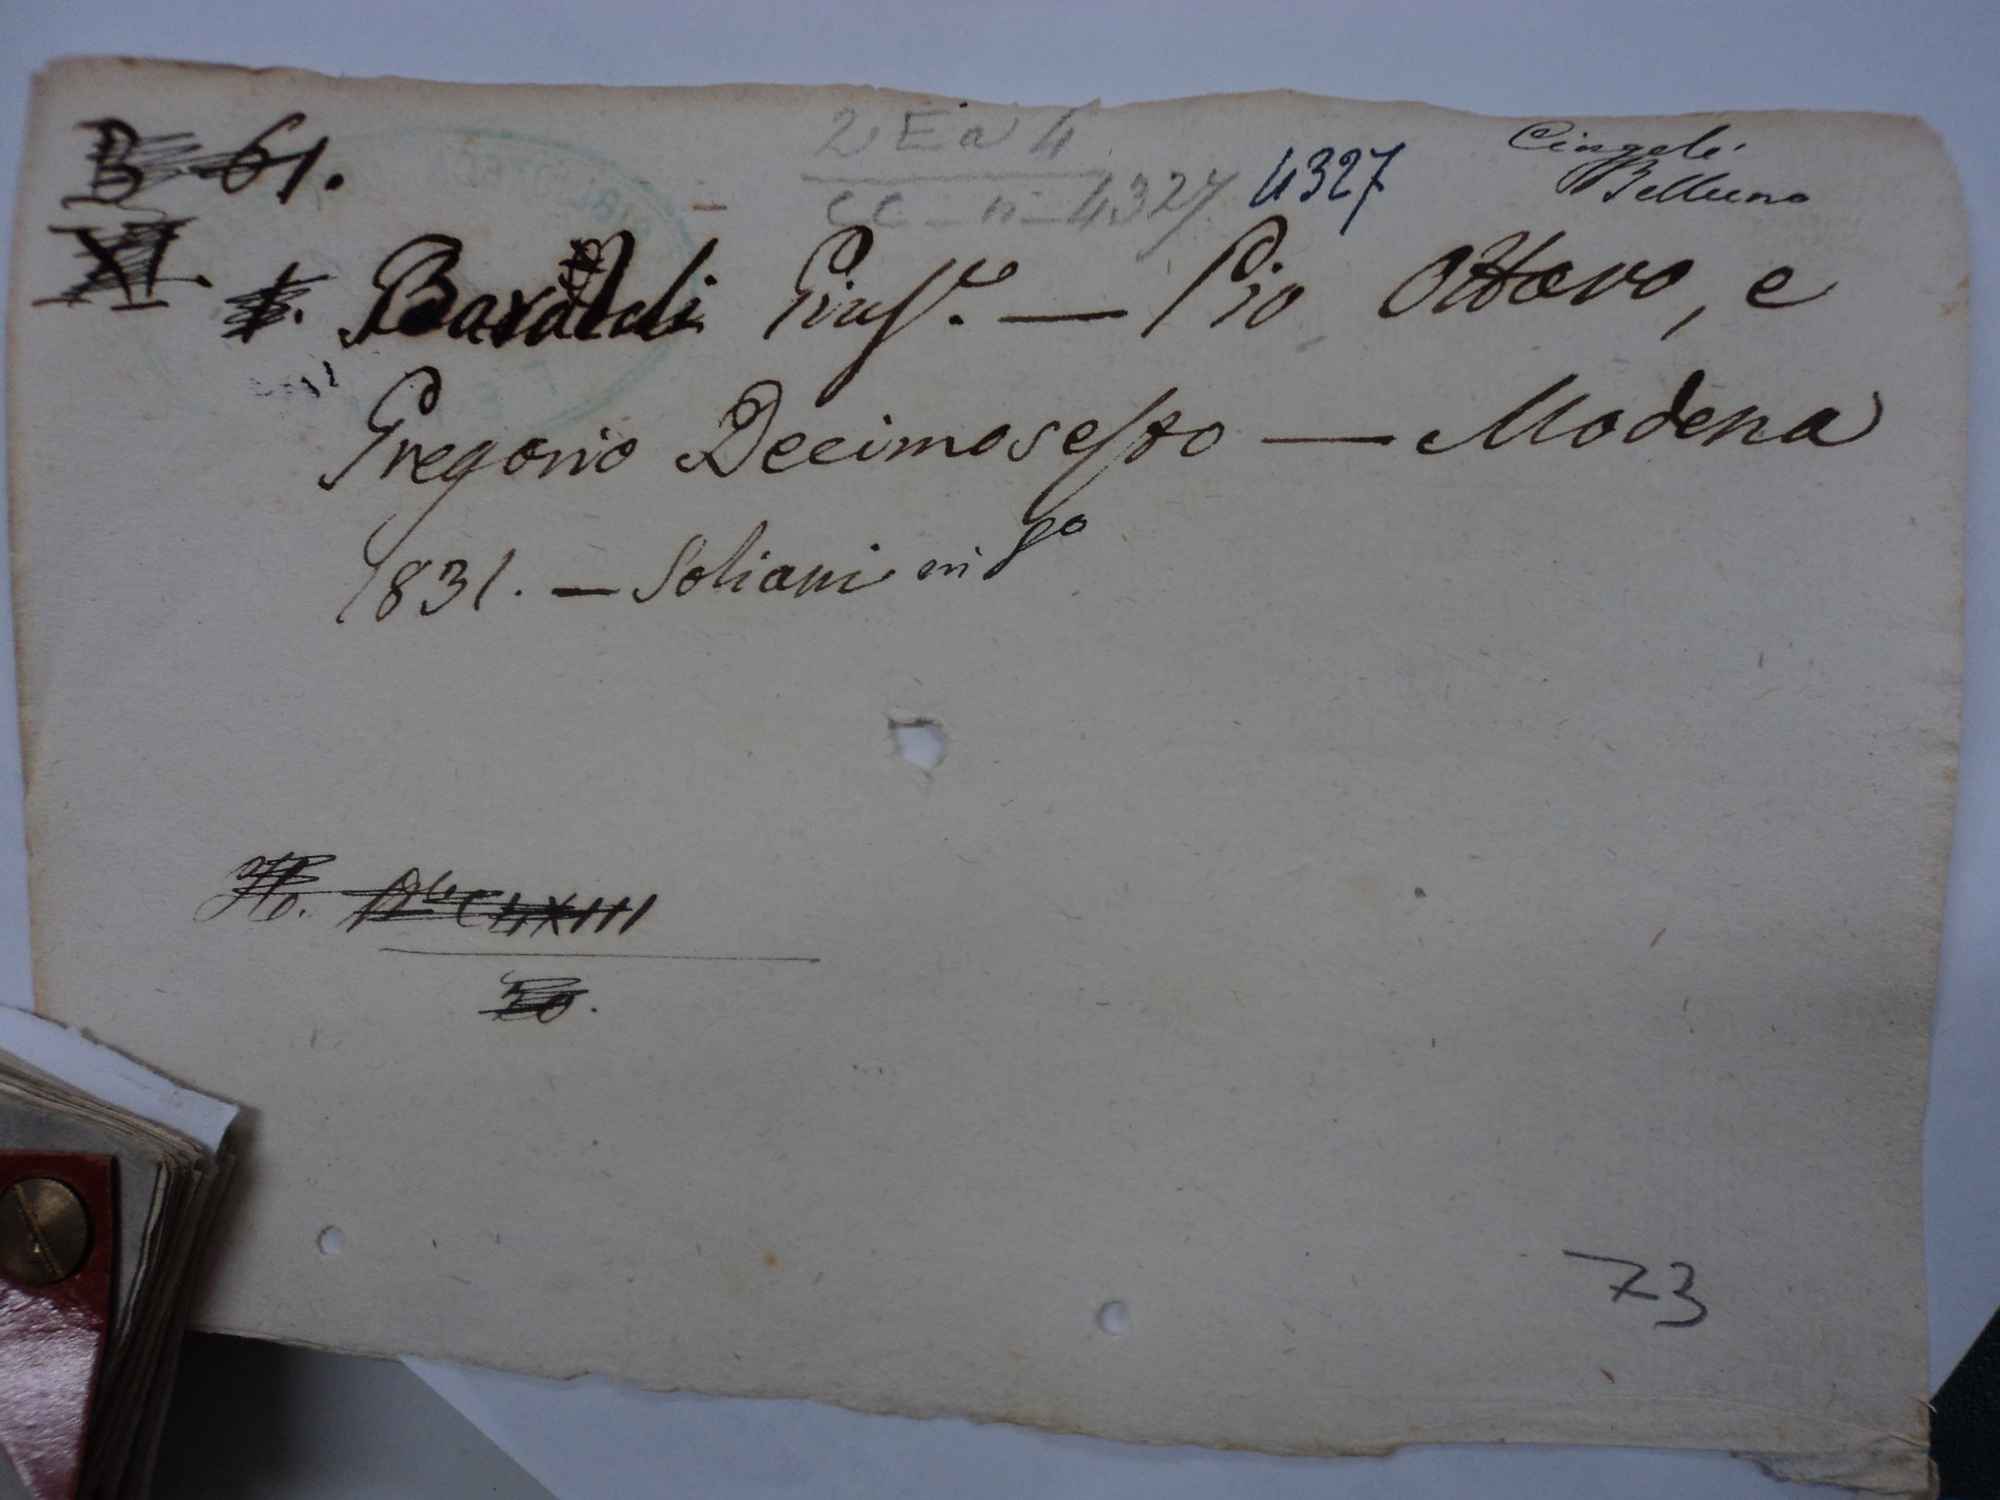 B 61.
2 E a 4
CC - n - 4327
4327
Cingoli
Belluno
XI.
Baraldi Gius.e — Pio Ottavo, e
Gregorio Decimosesto — Modena
1831. — Soliani in 8o
CLXIII
30.
73